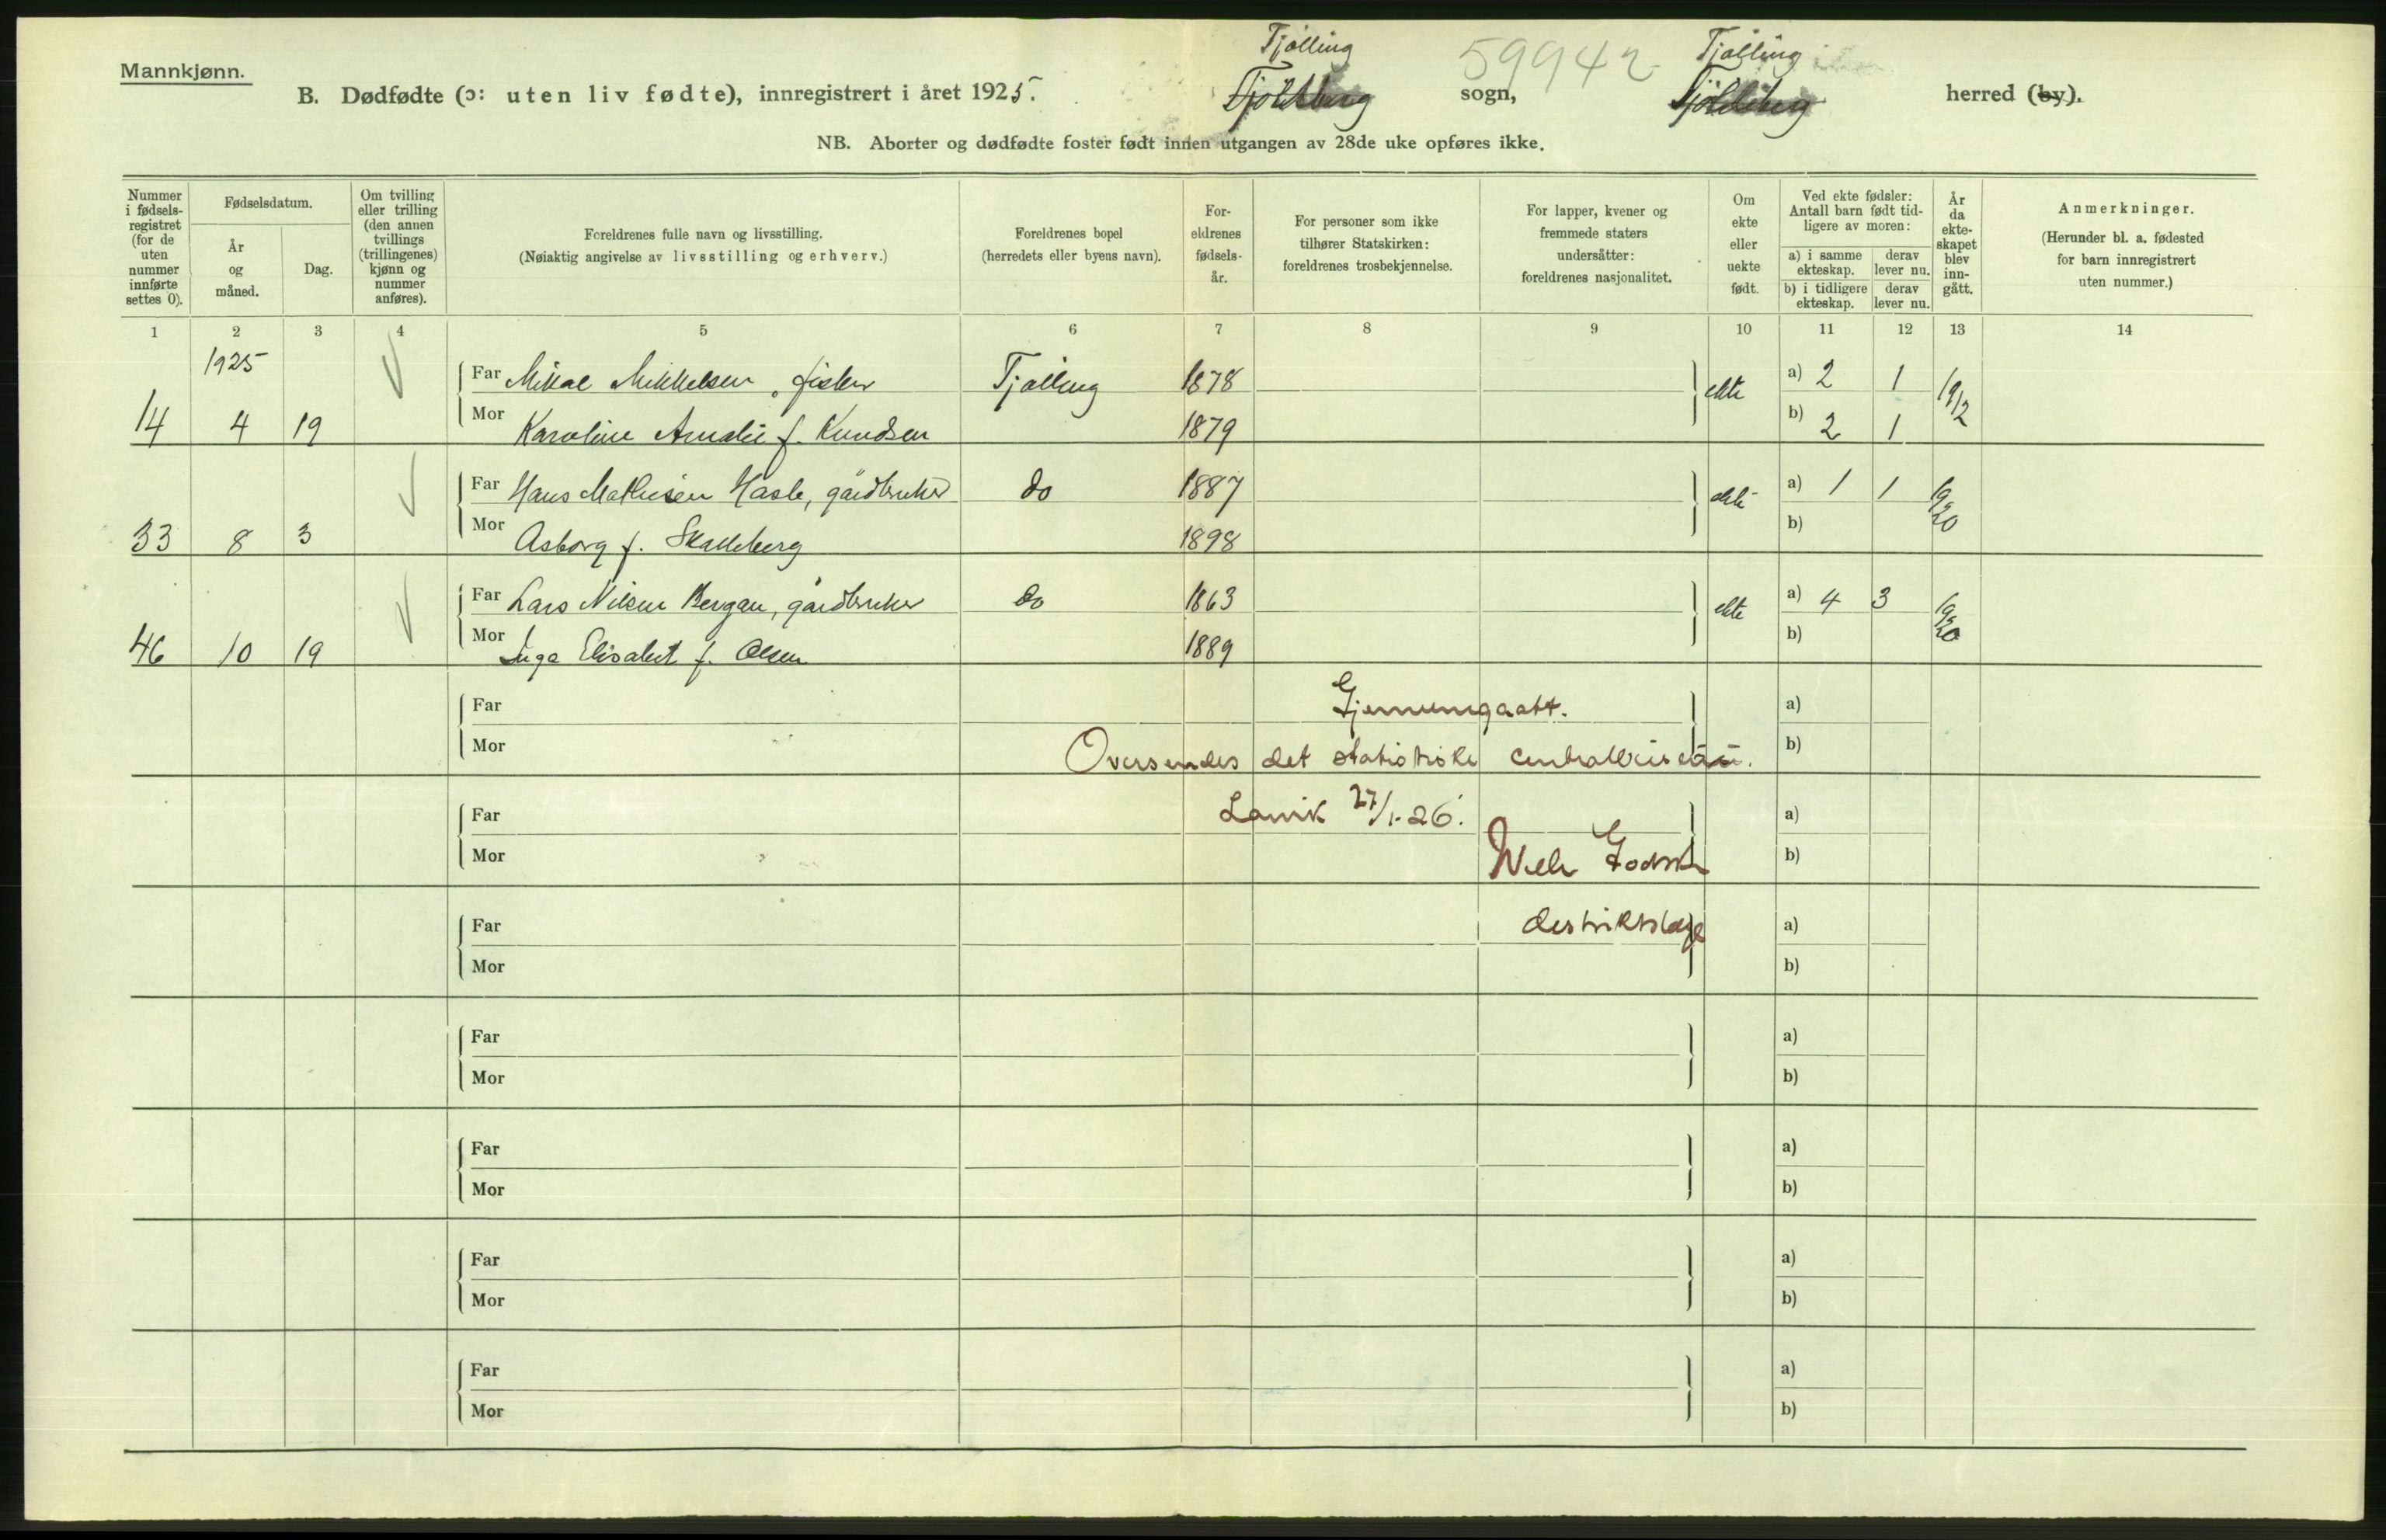 Mannkjønn.
B. Dødfødte (ɔ: uten liv fødte), innregistrert i året 1925.
Tjølling
sogn,
59942
Tjølling
herred (by).
NB. Aborter og dødfødte foster født innen utgangen av 28de uke opføres ikke.
Nummer
i fødsels-
registret
(for de
uten
nummer
innførte
settes 0).
Fødselsdatum.
År
og
måned.
Dag.
Om tvilling
eller trilling
(den annen
tvillings
(trillingenes)
kjønn og
nummer
anføres).
Foreldrenes fulle navn og livsstilling.
(Nøiaktig angivelse av livsstilling og erhverv.)
Foreldrenes bopel
(herredets eller byens navn).
For-
eldrenes
fødsels-
år.
For personer som ikke
tilhører Statskirken:
foreldrenes trosbekjennelse.
For lapper, kvener og
fremmede staters
undersåtter:
foreldrenes nasjonalitet.
Om
ekte
eller
uekte
født.
Ved ekte fødsler:
Antall barn født tid-
ligere av moren:
a) i samme
ekteskap.
derav
lever nu.
b) i tidligere
ekteskap.
derav
lever nu.
År
da
ekte-
skapet
blev
inn-
gått.
Anmerkninger.
(Herunder bl. a. fødested
for barn innregistrert
uten nummer.)
1 2 3 4 5 6 7 8 9 10 11 12 13 14
1925
Far Mikal Mikkelsen, fisker Tjølling 1878 ekte a) 2 1 1912
14 4 19 Mor Karoline Amalie f. Knudsen 1879 b) 2 1
Far Hans Mathisen Hasle, gårdbruker do 1887 ekte a) 1 1 1920
33 8 3 Mor Asborg f. Skalleberg 1898 b)
Far Lars Nilsen Bergan, gårdbruker do 1863 ekte a) 4 3 1920
46 10 19 Mor Inga Elisabet f. Olsen 1889 b)
Far Gjennemgaatt. a)
Mor Oversendes det statistiske centralbureau. b)
Far Larvik 27/1-26. a)
Mor b)
Far distriktslæge a)
Mor b)
Far a)
Mor b)
Far a)
Mor b)
Far a)
Mor b)
Far a)
Mor b)